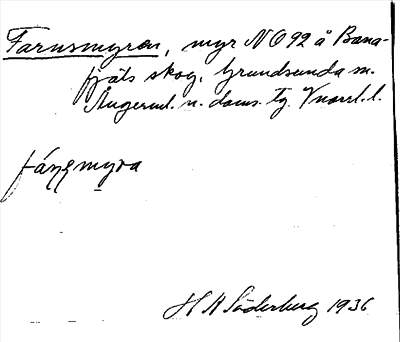 Farnsmyran, myr NO 92 å Bana-
fjäls skog, Grundsunda sn.
Ångerml. n. doms. tg. Vnorrl. l.
H A Söderberg 1936